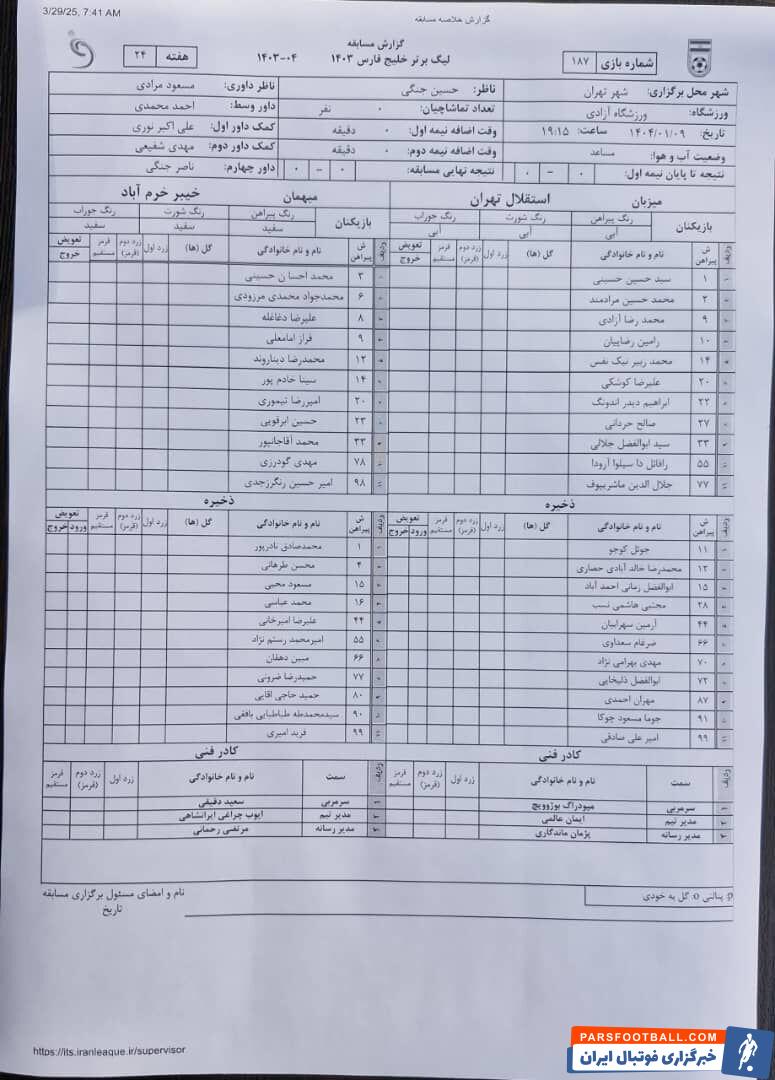 3/29/25, 7:41 AM
گزارش خلاصه مسابقه
گزارش مسابقه
شماره بازی ۱۸۷
لیگ برتر خلیج فارس ۱۴۰۳
۱۴۰۳-۰۴
هفته ۲۴
شهر محل برگزاری: شهر تهران
ناظر: حسین جنگی
ناظر داوری: مسعود مرادی
ورزشگاه: ورزشگاه آزادی
تعداد تماشاچیان: ۰ نفر
داور وسط: احمد محمدی
تاریخ: ۱۴۰۴/۰۱/۰۹ ساعت: ۱۹:۱۵
وقت اضافه نیمه اول: ۰ دقیقه
کمک داور اول: علی اکبر نوری
وضعیت آب و هوا: مساعد
وقت اضافه نیمه دوم: ۰ دقیقه
کمک داور دوم: مهدی شفیعی
نتیجه تا پایان نیمه اول: ۰ – ۰
نتیجه نهایی مسابقه: ۰ – ۰
داور چهارم: ناصر جنگی
میزبان استقلال تهران
بازیکنان
رنگ پیراهن رنگ شورت رنگ جوراب
آبی آبی آبی
ردیف ش پیراهن نام و نام خانوادگی گل (ها) زرد اول زرد دوم (قرمز) قرمز مستقیم تعویض خروج
۱ سید حسین حسینی
۲ محمد حسین مرادمند
۹ محمد رضا آزادی
۱۰ رامین رضاییان
۱۴ محمد زبیر نیک نفس
۲۰ علیرضا کوشکی
۲۲ ابراهیم دیدر اندونگ
۲۷ صالح حردانی
۳۳ سید ابوالفضل جلالی
۵۵ رافائل دا سیلوا آرودا
۷۷ جلال الدین ماشریپوف
ذخیره
ردیف ش پیراهن نام و نام خانوادگی گل (ها) زرد اول زرد دوم (قرمز) قرمز مستقیم تعویض ورود خروج
۱۱ جوئل کوجو
۱۲ محمدرضا خالد آبادی حصاری
۱۵ ابوالفضل زمانی احمد آباد
۲۸ مجتبی هاشمی نسب
۴۴ آرمین سهرابیان
۶۶ ضرغام سعداوی
۷۰ مهدی بهرامی نژاد
۷۲ ابوالفضل ذلیخایی
۸۷ مهران احمدی
۹۱ جوما مسعود چوکا
۹۹ امیر علی صادقی
کادر فنی
ردیف سمت نام و نام خانوادگی زرد اول زرد دوم (قرمز) قرمز مستقیم
۱ سرمربی میودراگ بوژوویچ
۲ مدیر تیم ایمان عالمی
۳ مدیر رسانه پژمان ماندگاری
میهمان خیبر خرم آباد
بازیکنان
رنگ پیراهن رنگ شورت رنگ جوراب
سفید سفید سفید
ردیف ش پیراهن نام و نام خانوادگی گل (ها) زرد اول زرد دوم (قرمز) قرمز مستقیم تعویض خروج
۳ محمد احسا ن حسینی
۶ محمدجواد محمدی مرزودی
۸ علیرضا دغاغله
۹ فراز امامعلی
۱۲ محمدرضا دیناروند
۱۴ سینا خادم پور
۲۰ امیررضا تیموری
۲۳ حسین ابرقویی
۳۳ محمد آقاجانپور
۷۸ مهدی گودرزی
۹۸ امیر حسین رنگرزجدی
ذخیره
ردیف ش پیراهن نام و نام خانوادگی گل (ها) زرد اول زرد دوم (قرمز) قرمز مستقیم تعویض ورود خروج
۱ محمدصادق نادرپور
۴ محسن طرهانی
۱۵ مسعود محبی
۱۶ محمد عباسی
۴۴ علیرضا امیرخانی
۵۵ امیرمحمد رستم نژاد
۶۶ مبین دهقان
۷۷ حمیدرضا ضرونی
۸۰ حمید حاجی اقایی
۹۰ سیدمحمدطه طباطبایی بافقی
۹۹ فرید امیری
کادر فنی
ردیف سمت نام و نام خانوادگی زرد اول زرد دوم (قرمز) قرمز مستقیم
۱ سرمربی سعید دقیقی
۲ مدیر تیم ایوب چراغی ایرانشاهی
۳ مدیر رسانه مرتضی رحمانی
p: پنالتی o: گل به خودی
نام و امضای مسئول برگزاری مسابقه
تاریخ
https://its.iranleague.ir/supervisor
PARSFOOTBALL.COM
خبرگزاری فوتبال ایران